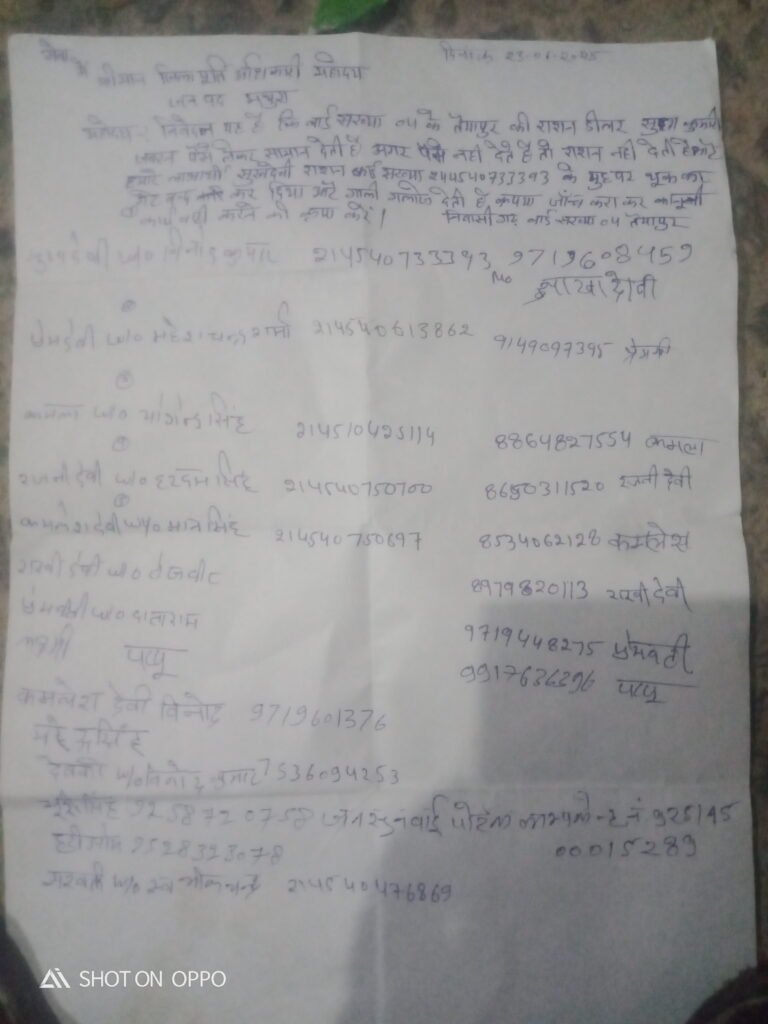 सेवा में
श्रीमान जिला पूर्ति अधिकारी महोदय
दिनांक 23-01-2025
जनपद मथुरा
महोदय, निवेदन यह है कि वार्ड संख्या 04 के तैयापुर की राशन डीलर कुमारी
पैसे लेकर सामान देती है अगर पैसे नहीं देते है तो राशन नहीं देती है
हमारे लाभार्थी सुखदेवी राशन कार्ड संख्या 214540733393 के मुह पर थूक कर
गेट बन्द कर दिया और गाली गलोज देती है कृपया जाँच करा कर कानूनी
कार्यवाही करने की कृपा करें। निवासीगढ़ वार्ड संख्या 04 तैयापुर
सुखदेवी w/o विनोद कुमार 214540733393 9719608459
प्रेमदेवी w/o महेशचन्द्र शर्मा 214540613862 9149097395
कमला w/o योगेन्द्र सिंह 214510425114 8864827554 कमला
रजनी देवी w/o हरदम सिंह 214540750700 8650311520 रजनी देवी
कमलेश देवी w/o मान सिंह 214540750697 8534062128 कमलेश
राखी देवी w/o तेजवीर 8979820113 राखी देवी
प्रेमवती w/o दाताराम 9719448275 प्रेमवती
पप्पू 9917636396 पप्पू
कमलेश देवी विनोद 9719601376
महेन्द्र सिंह
देवकी w/o विनोद कुमार 7536094253
9258720758 जनसुनवाई पोर्टल कम्प्लेन्ट नं 925145
00015289
हरीओम 2528323078
सरवती w/o स्व 214540476869
SHOT ON OPPO